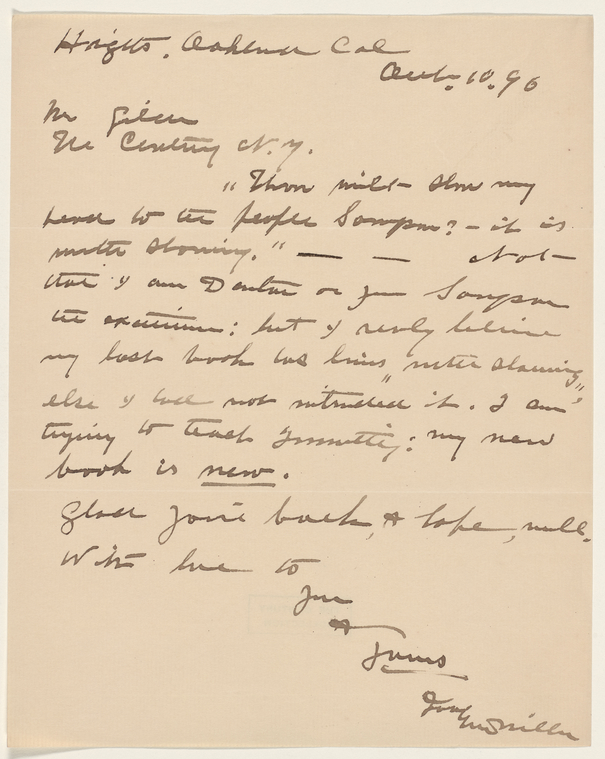 Hights, Oakland Cal
Oct. 10. 96
Mr Gilder
The Century N.Y.
"Thou wilt show my
head to the people Sampson? – it is
worth showing." — — Not
that I am Danton or you Sampson
the executioner: but I really believe
my last book has lines "worth showing",
else I had not intruded it. I am
trying to teach Immortality: my new
book is new.
Glad you're back, & hope, well.
With love to
you
&
yours
Joaquin Miller